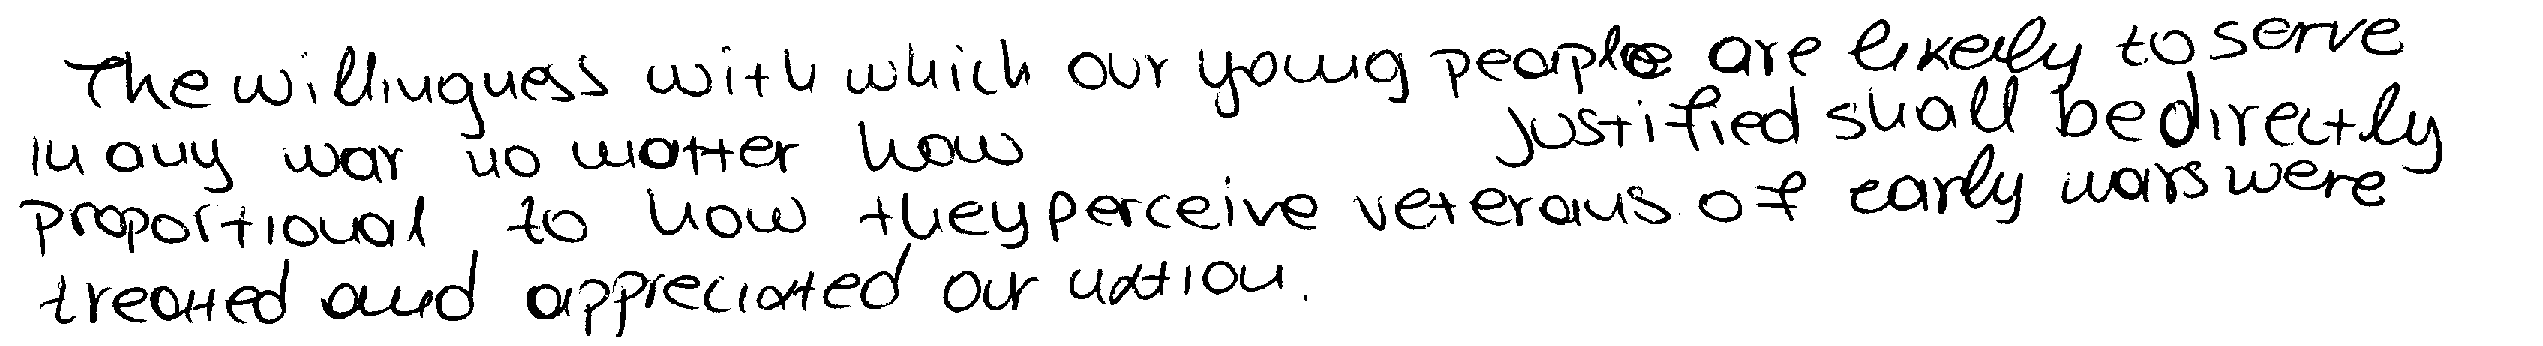 The willingness with which our young people are likely to serve
in any war no matter how justified shall be directly
proportional to how they perceive veterans of early wars were
treated and appreciated our nation.